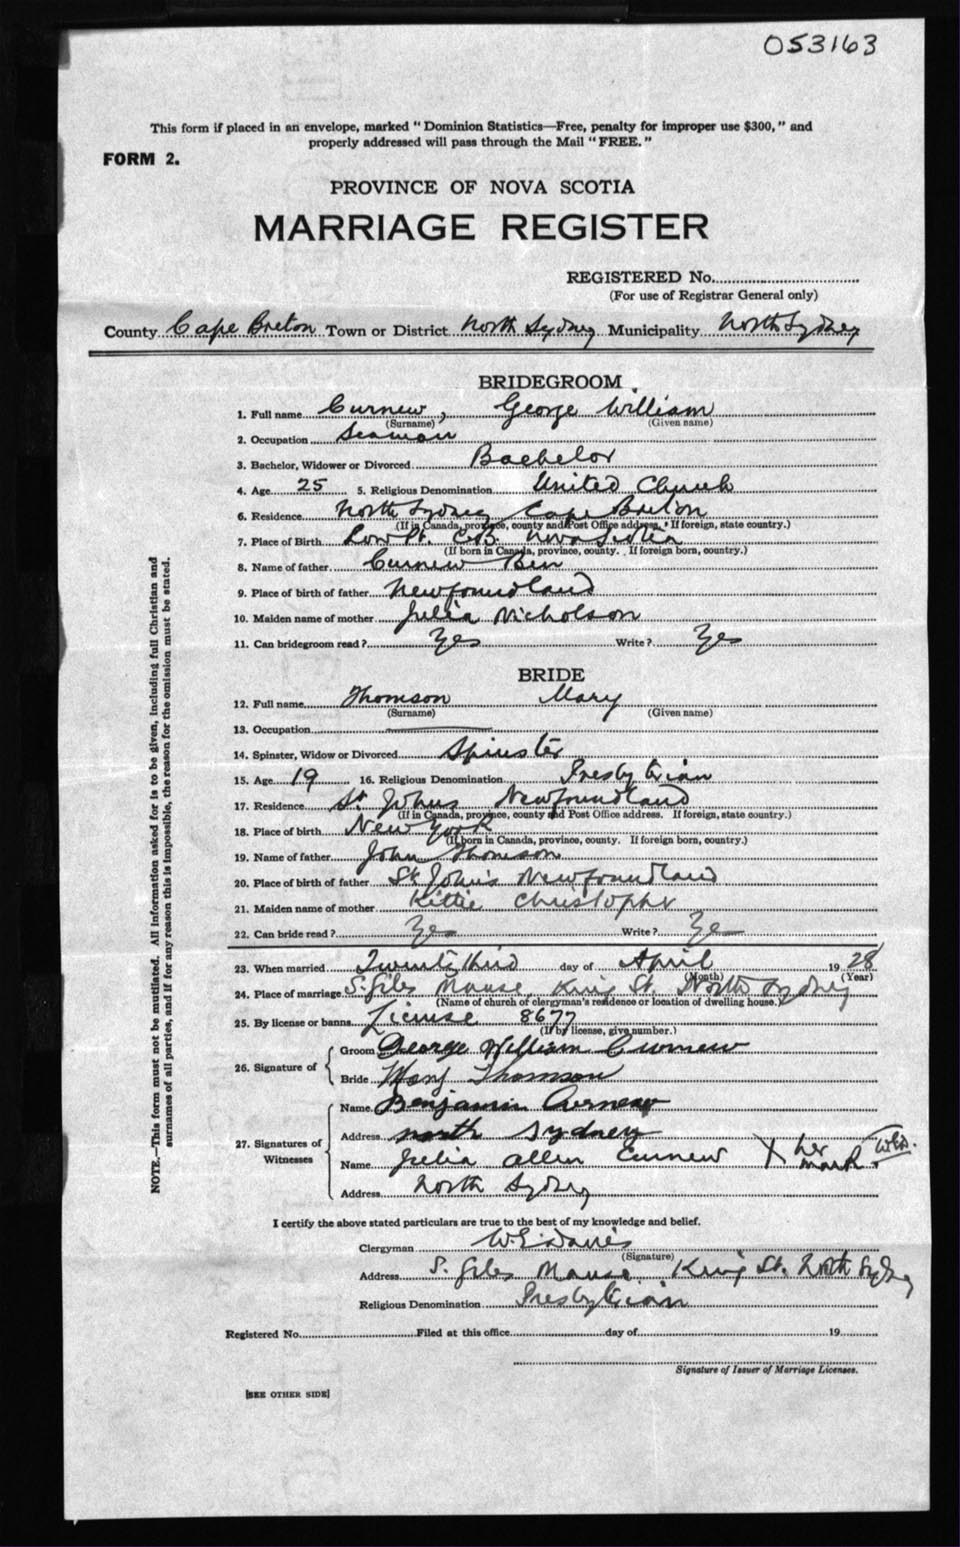 053163
This form if placed in an envelope, marked "Dominion Statistics—Free, penalty for improper use $300," and
properly addressed will pass through the Mail "FREE."
FORM 2.
PROVINCE OF NOVA SCOTIA
MARRIAGE REGISTER
REGISTERED No.
(For use of Registrar General only)
County Cape Breton Town or District North Sydney Municipality North Sydney
BRIDEGROOM
1. Full name Curnew, George William
(Surname) (Given name)
2. Occupation Seaman
3. Bachelor, Widower or Divorced Bachelor
4. Age 25 5. Religious Denomination United Church
6. Residence North Sydney Cape Breton
(If in Canada, province, county and Post Office address. If foreign, state country.)
7. Place of Birth Low Pt. C.B. Nova Scotia
(If born in Canada, province, county. If foreign born, country.)
8. Name of father Curnew Ben
9. Place of birth of father Newfoundland
10. Maiden name of mother Julia Nicholson
11. Can bridegroom read? Yes Write? Yes
BRIDE
12. Full name Thomson Mary
(Surname) (Given name)
13. Occupation
14. Spinster, Widow or Divorced Spinster
15. Age 19 16. Religious Denomination Presbyterian
17. Residence St. Johns Newfoundland
(If in Canada, province, county and Post Office address. If foreign, state country.)
18. Place of birth New York
(If born in Canada, province, county. If foreign born, country.)
19. Name of father John Thomson
20. Place of birth of father St. John's Newfoundland
21. Maiden name of mother Kittie Christopher
22. Can bride read? Yes Write? Yes
23. When married Twenty third day of April 1928
(Month) (Year)
24. Place of marriage S. Giles Manse, King St. North Sydney
(Name of church or clergyman's residence or location of dwelling house.)
25. By license or banns License 8677
(If by license, give number.)
26. Signature of
Groom George William Curnew
Bride Mary Thomson
27. Signatures of Witnesses
Name Benjamin Curnew
Address North Sydney
Name Julia Allen Curnew X her mark W.E.D.
Address North Sydney
I certify the above stated particulars are true to the best of my knowledge and belief.
Clergyman W E Davies
(Signature)
Address S. Giles Manse, King St. North Sydney
Religious Denomination Presbyterian
Registered No. Filed at this office day of 19
Signature of Issuer of Marriage Licenses.
[SEE OTHER SIDE]
NOTE.—This form must not be mutilated. All information asked for is to be given, including full Christian and
surnames of all parties, and if for any reason this is impossible, the reason for the omission must be stated.